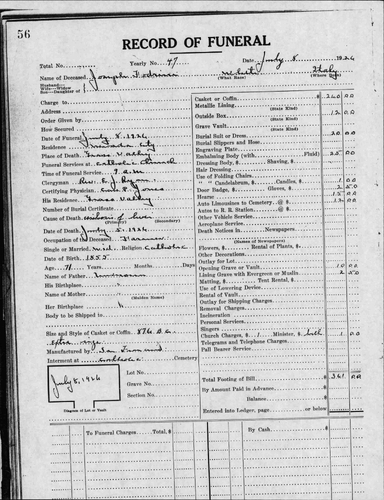 56
RECORD OF FUNERAL
Total No. Yearly No. 47 Date July 8 1926
Name of Deceased Joseph White Italy
(What Race) (Where Born)
Husband
Wife-Widow
Son-Daughter of
Charge to
Address
Order Given by
How Secured
Date of Funeral July 8, 1926
Residence City
Place of Death Grass Valley
Funeral Services at Catholic Church
Time of Funeral Service 9 A.M.
Clergyman Rev.
Certifying Physician Jones
His Residence Grass Valley
Number of Burial Certificate
Cause of Death of liver
(Primary) (Secondary)
Date of Death July 5, 1926
Occupation of the Deceased Farmer
Single or Married Religion Catholic
Date of Birth 1855
Age 71 Years Months Days
Name of Father
His Birthplace
Name of Mother
(Maiden Name)
Her Birthplace
Body to be Shipped to
Size and Style of Casket or Coffin
extra size
Manufactured by San Francisco
Interment at Catholic Cemetery
Lot No.
Grave No.
Section No.
July 8, 1926
Diagram of Lot or Vault
Casket or Coffin $ 240 00
Metallic Lining
(State Kind)
Outside Box 12 00
(State Kind)
Grave Vault
(State Kind)
Burial Suit or Dress 20 00
Burial Slippers and Hose
Engraving Plate
Embalming Body (with Fluid) 35 00
Dressing Body, $ Shaving, $
Hair Dressing
Use of Folding Chairs
" " Candelabrum, $ Candles, $ 1 00
Door Badge, $ Gloves, $ 2 50
Hearse 15 00
Auto Limousines to Cemetery @ $ 12 00
Autos to R. R. Station @ $
Other Vehicle Service
Aeroplane Service
Death Notices in Newspapers
(Names of Newspapers)
Flowers, $
Other Decorations
Outlay for Lot
Opening Grave or Vault 10 00
Lining Grave with Evergreen or Muslin 2 50
Matting, $ Tent Rental, $
Use of Lowering Device
Rental of Vault
Outlay for Shipping Charges
Removal Charges
Incineration
Personal Services
Singers
Church Charges, $ Minister, $
Telegrams and Telephone Charges
Pall Bearer Service
Total Footing of Bill $ 361 00
By Amount Paid in Advance
Balance
Entered into Ledger, page or below
To Funeral Charges Total $ By Cash $